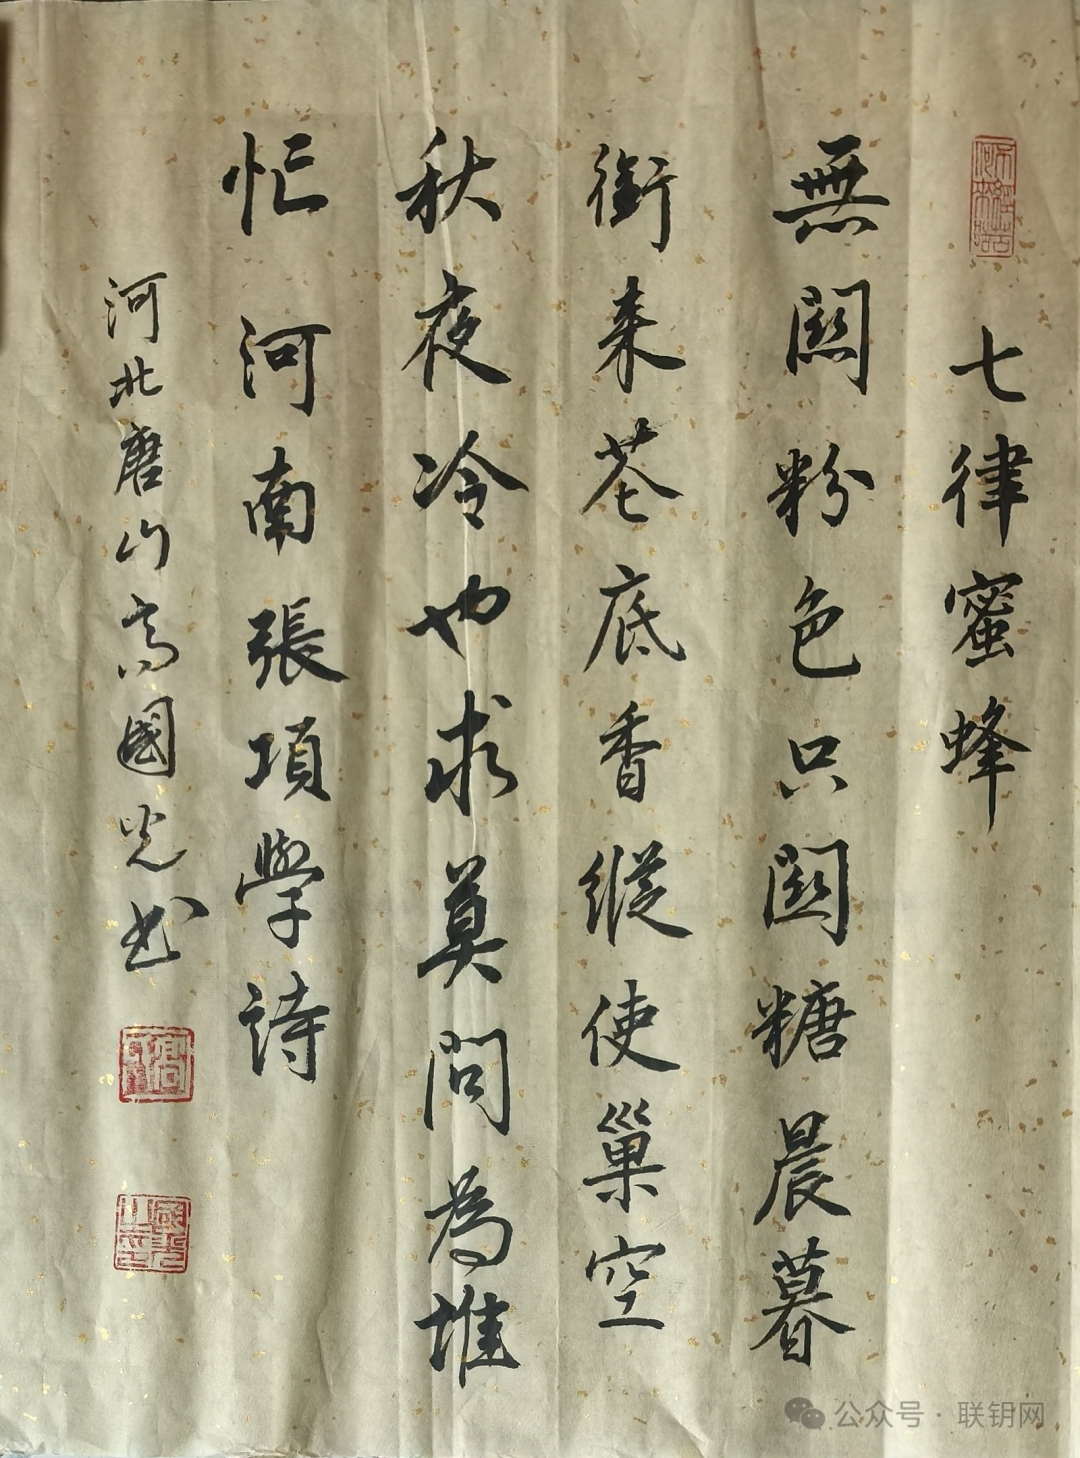 七律蜜蜂
無關粉色只關糖晨暮
銜来花底香縱使巢空
秋夜冷也求莫問為堆
忙河南張項學詩
河北唐山高國光书
國光之印
公众号·联钥网